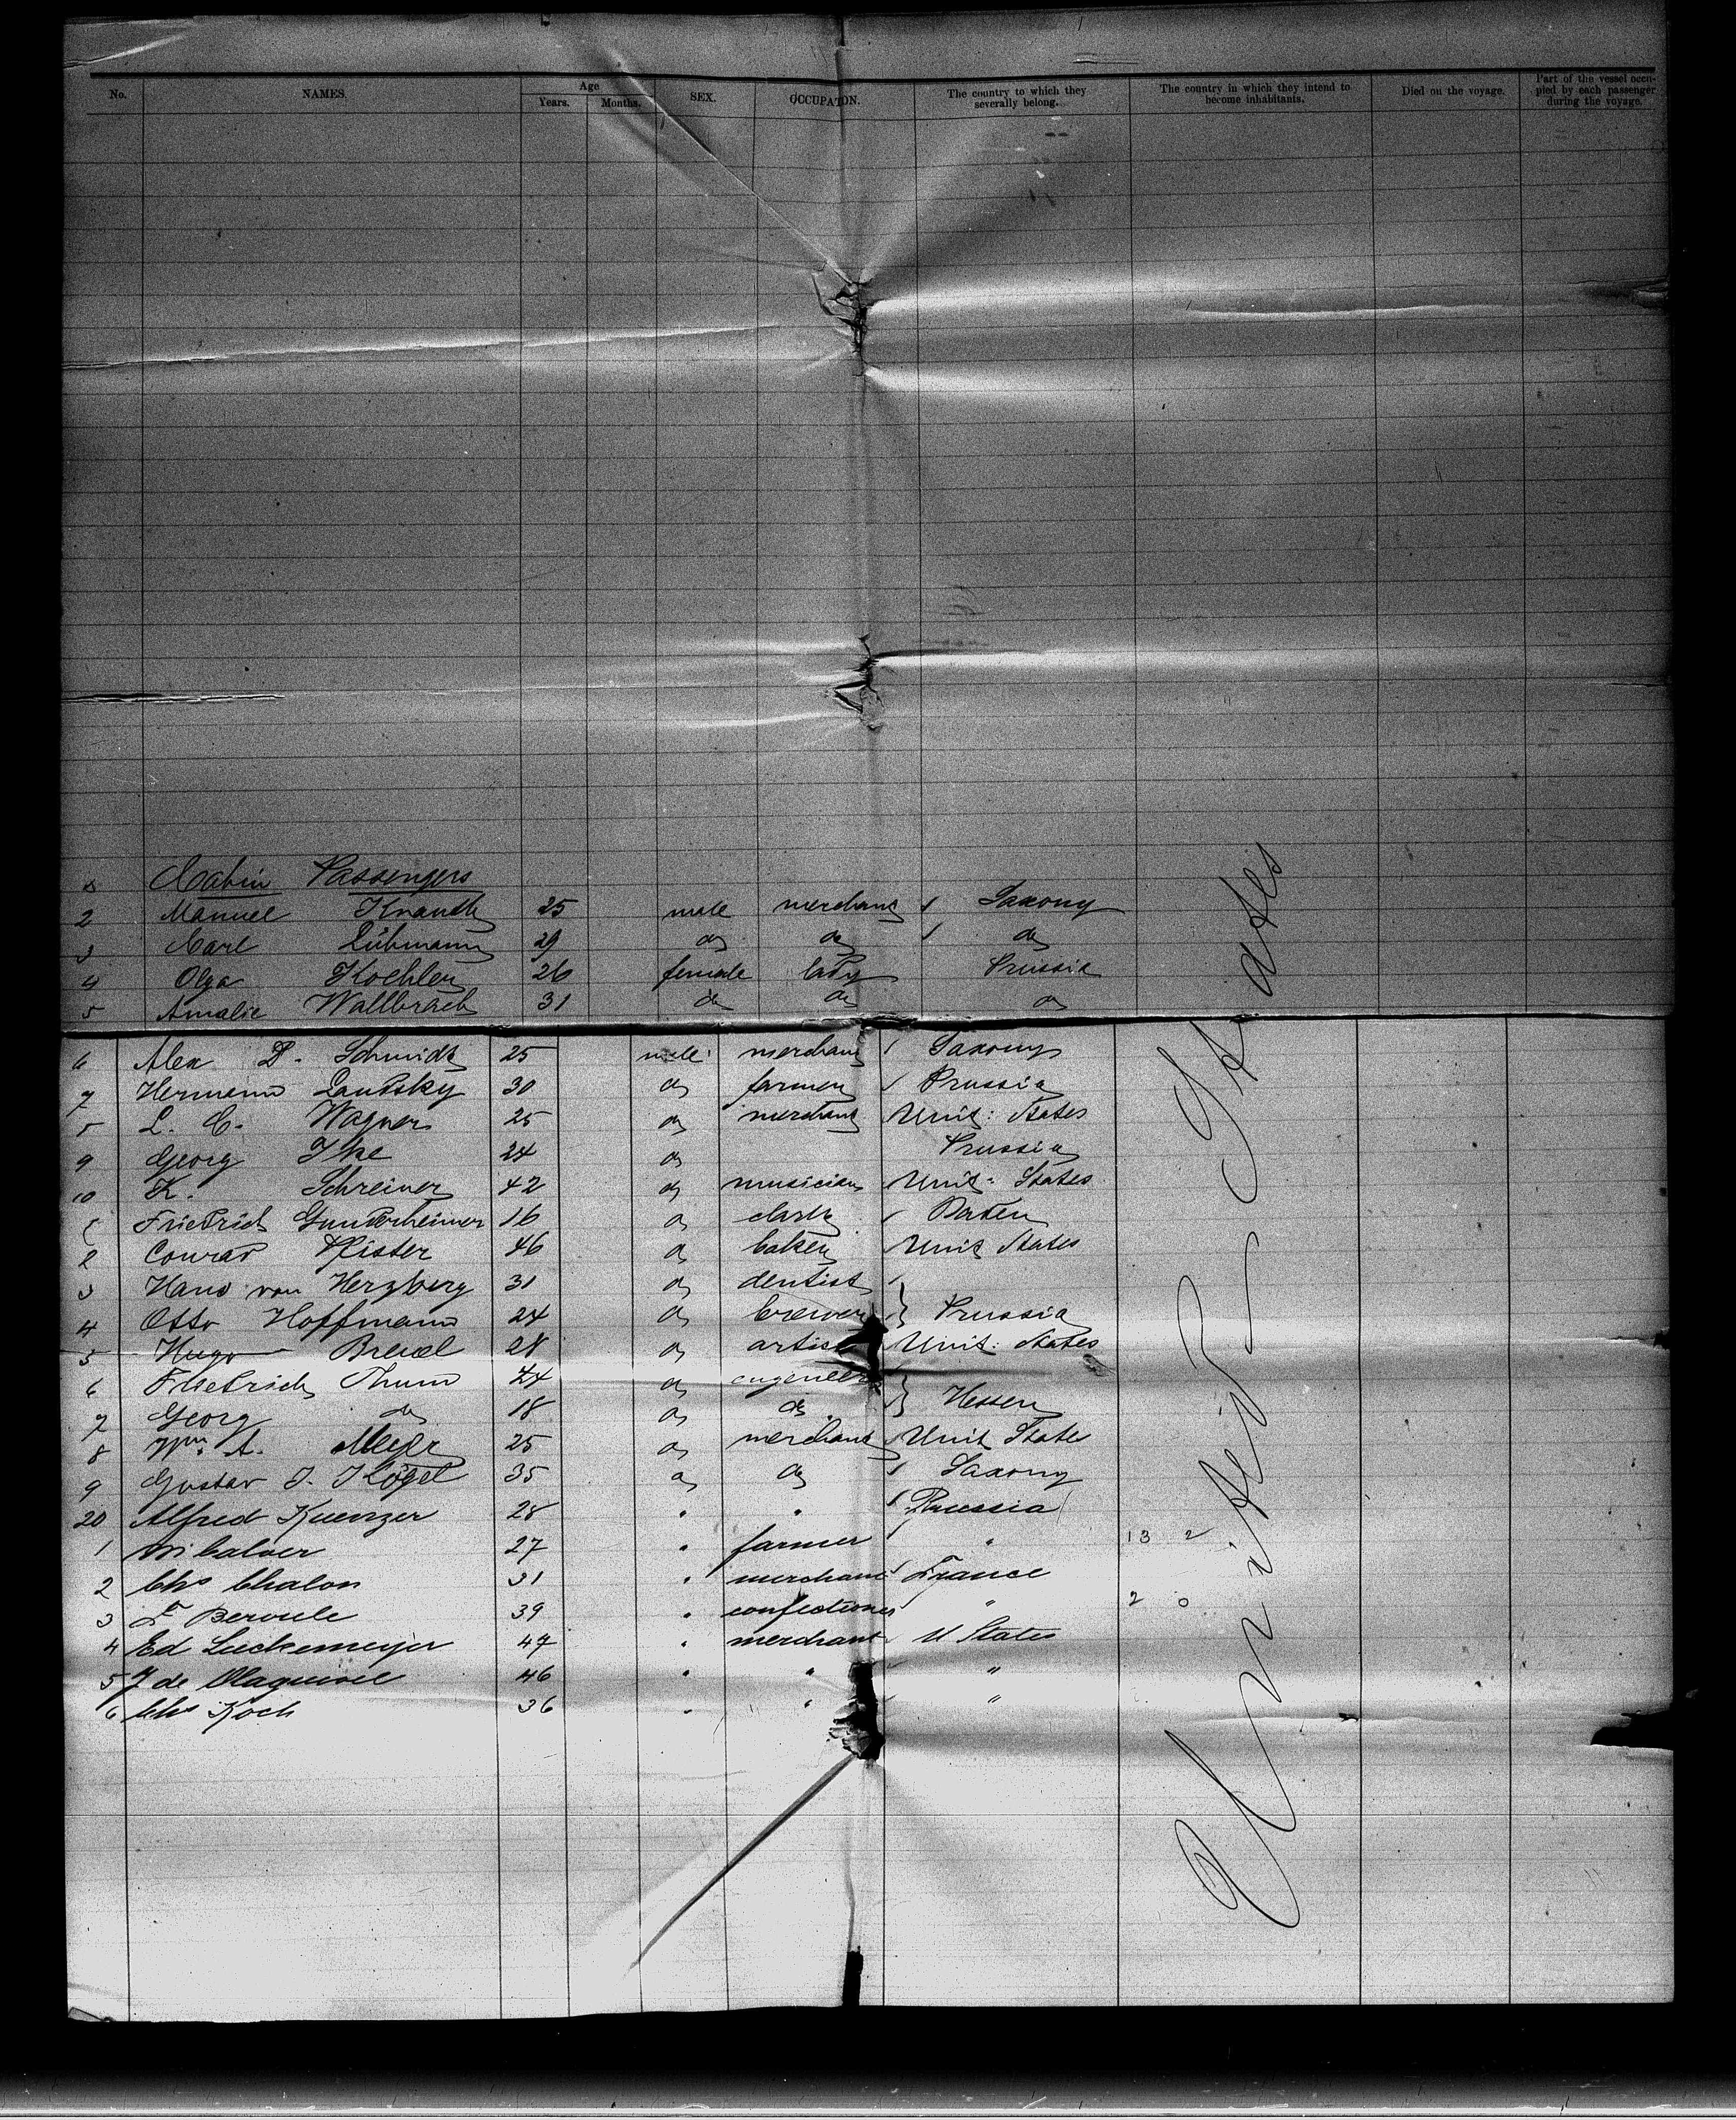 No. NAMES. Age Years. Months. SEX. OCCUPATON. The country to which they severally belong. The country in which they intend to become inhabitants. Died on the voyage. Part of the vessel occupied by each passenger during the voyage.
Cabin Passengers
2 Manuel Knauth 25 male merchant Saxony
3 Carl Lühmann 29 do do do
4 Olga Koehler 26 female lady Prussia
5 Amalie Wallbrach 31 do do do
6 Alex D. Schmidt 25 male merchant Saxony
7 Hermann Landsky 30 do farmer Prussia
L. C. Wagner 25 do merchant Unit: States
9 Georg Ihe 24 do Prussia
10 K. Schreiner 42 do musician Unit: States
Friedrich Gunderheimer 16 do clark Baden
2 Conrad Pfister 46 do baker Unit States
3 Hans von Herzberg 31 do dentist
4 Otto Hoffmann 24 do brewer } Prussia
5 Hugo Breul 28 do artist Unit: States
6 Friedrich Thum 24 do engeneer
7 Georg do 18 do do } Hessen
8 Wm. A. Meyer 25 do merchant Unit State
9 Gustav J. Kögel 35 do do Saxony
20 Alfred Kuenzer 28 " " Prussia
1 27 " farmer " 13 2
2 Chs Chalon 31 " merchant France
3 F 39 " confectioner " 2 0
4 Ed Luckemeyer 47 " merchant U States
5 J de Olaguivel 46 " " "
6 Chs Koch 36 " " "
United States